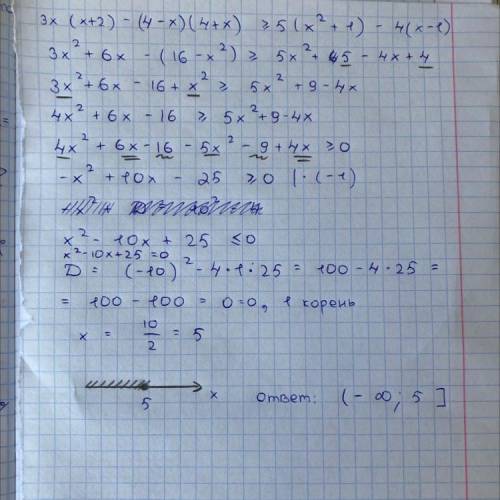 3x (x+2) - (4-x)(4+x) ≥ 5(x² + 1) - 4(x-1)
3x² + 6x - (16 - x²) ≥ 5x² + 5 - 4x + 4
3x² + 6x - 16 + x² ≥ 5x² + 9 - 4x
4x² + 6x - 16 ≥ 5x² + 9 - 4x
4x² + 6x - 16 - 5x² - 9 + 4x ≥ 0
-x² + 10x - 25 ≥ 0 | · (-1)
x² - 10x + 25 ≤ 0
x² - 10x + 25 = 0
D = (-10)² - 4 · 1 · 25 = 100 - 4 · 25 =
= 100 - 100 = 0 = 0, 1 корень
x = 10/2 = 5
5 x Ответ: (- ∞; 5 ]